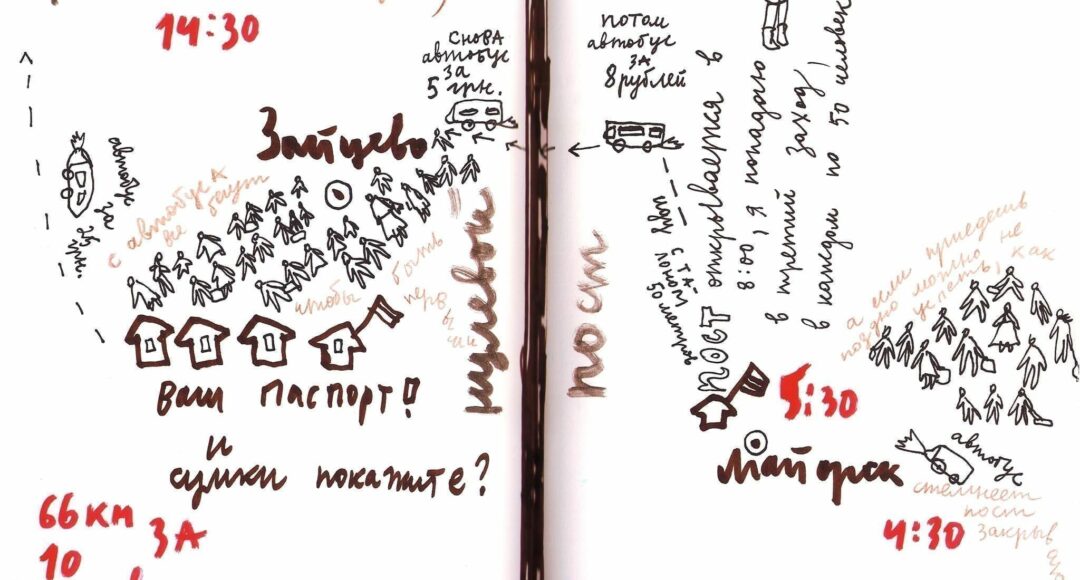 14:30
снова
автобус
за
5 грн.
Зайцево
с автобуса
все
бегут
чтобы
быть
перв
ыми
нулевой
Ваш паспорт!
и
сумки покажите?
66 км
за
10
потом
автобус
за
8 рублей
пост
иду с та-
лоном
50 метров
пост открывается в
8:00, я попадаю
в третий заход,
в каждом по 50 человек
а если приедешь
поздно можно не
успеть, как
5:30
Майорск
автобус
стемнеет
пост
закрыв
4:30